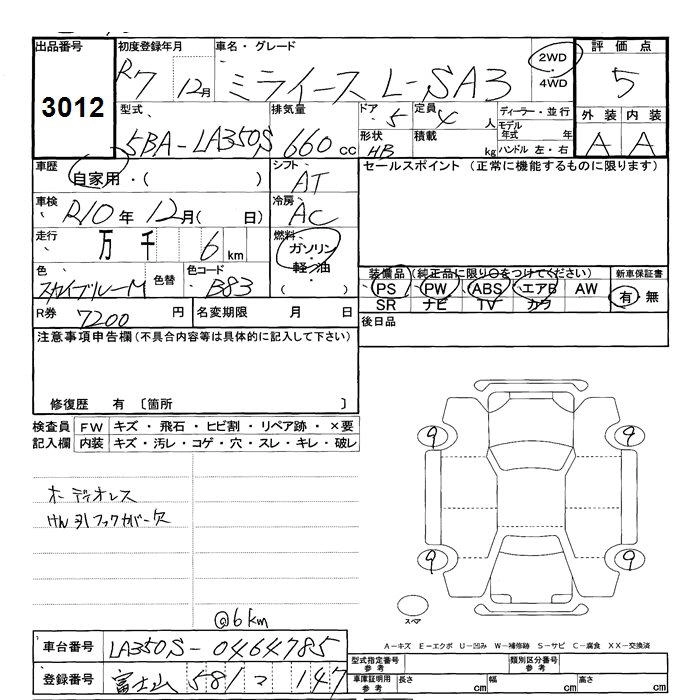 出品番号 初度登録年月 車名・グレード 評価点
3012 R7 12月 ミライース L-SA3 2WD・4WD 5
型式 排気量 ドア 5 定員 4 人 ディーラー・並行 外装 内装
5BA-LA350S 660 cc 形状 HB 積載 kg モデル年式 年 ハンドル 左・右 A A
車歴 自家用・( ) シフト AT セールスポイント (正常に機能するものに限ります)
車検 R10年 12月( 日) 冷房 AC
走行 万 千 6 km 燃料 ガソリン・軽油 ( )
色 スカイブルーM 色替 色コード B83
装備品(純正品に限り○をつけてください) 新車保証書
PS PW ABS エアB AW 有・無
SR ナビ TV カワ
R券 7200 円 名変期限 月 日 後日品
注意事項申告欄(不具合内容等は具体的に記入して下さい)
修復歴 有 〔箇所 〕
検査員 FW キズ・飛石・ヒビ割・リペア跡・×要
記入欄 内装 キズ・汚レ・コゲ・穴・スレ・キレ・破レ
9 9
オーディオレス
けん引フックカバー欠
9 9
スペア
@6km
A-キズ E-エクボ U-凹み W-補修跡 S-サビ C-腐食 XX-交換済
車台番号 LA350S-0464785
型式指定番号 参考 類別区分番号 参考
登録番号 富士山 581 こ 147
車庫証明用 参考 長さ cm 幅 cm 高さ cm